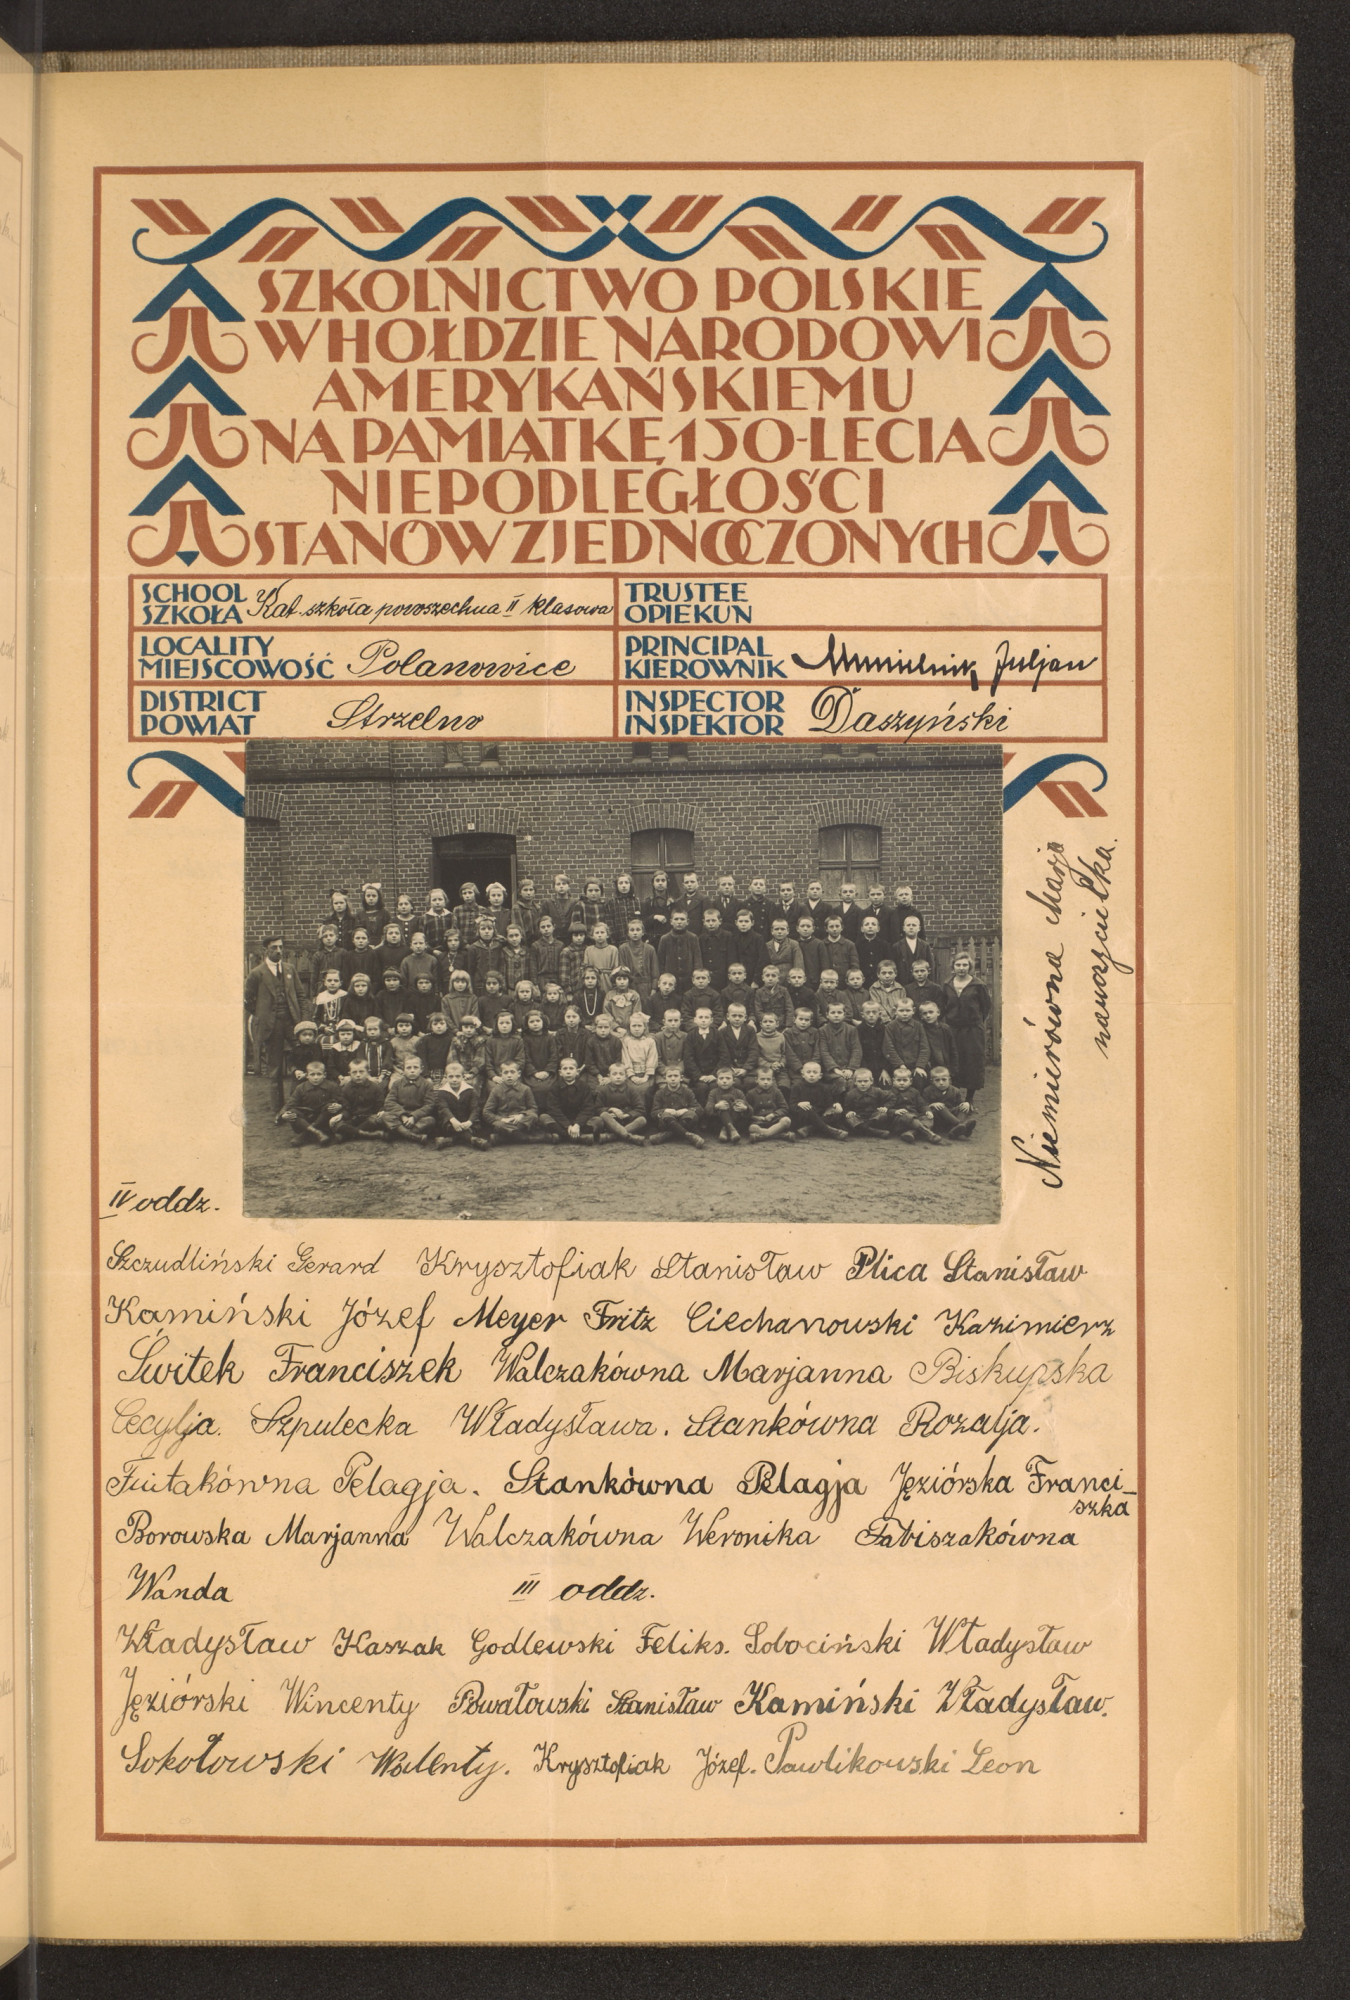 SZKOLNICTWO POLSKIE
W HOŁDZIE NARODOWI
AMERYKAŃSKIEMU
NA PAMIĄTKĘ 150-LECIA
NIEPODLEGŁOŚCI
STANÓW ZJEDNOCZONYCH
SCHOOL
SZKOŁA Kat. szkoła powszechna II klasowa
TRUSTEE
OPIEKUN
LOCALITY
MIEJSCOWOŚĆ Polanowice
PRINCIPAL
KIEROWNIK Juljan
DISTRICT
POWIAT Strzelno
INSPECTOR
INSPEKTOR Daszyński
Niemierówna Marja
nauczycielka.
IV oddz.
Szczudliński Gerard Krysztofiak Stanisław Plica Stanisław
Kamiński Józef Meyer Fritz Ciechanowski Kazimierz
Świtek Franciszek Walczakówna Marjanna Biskupska
Cecylja. Szpulecka Władysława. Stankówna Rozalja.
Pelagja. Stankówna Pelagja Jęziórska Franci-
szka
Borowska Marjanna Walczakówna Weronika Fabiszakówna
Wanda III oddz.
Władysław Kaszak Godlewski Feliks. Sobociński Władysław
Jęziórski Wincenty Powałowski Stanisław Kamiński Władysław.
Sokołowski Walenty. Krysztofiak Józef. Pawlikowski Leon